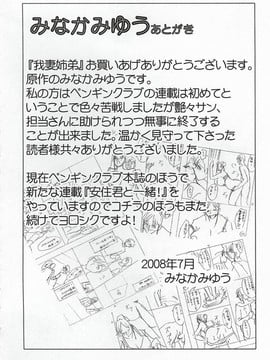 みなかみゆう あとがき
『我妻姉弟』お買いあげありがとうございます。
原作のみなかみゆうです。
私の方はペンギンクラブの連載は初めてと
いうことで色々苦戦しましたが艶々サン、
担当さんに助けられつつ無事に終了する
ことが出来ました。温かく見守って下さった
読者様共々ありがとうございました。
現在ペンギンクラブ本誌のほうで
新たな連載『安住君と一緒!』を
やっていますのでコチラのほうもまた
続けてヨロシクですよ!
2008年7月
みなかみゆう